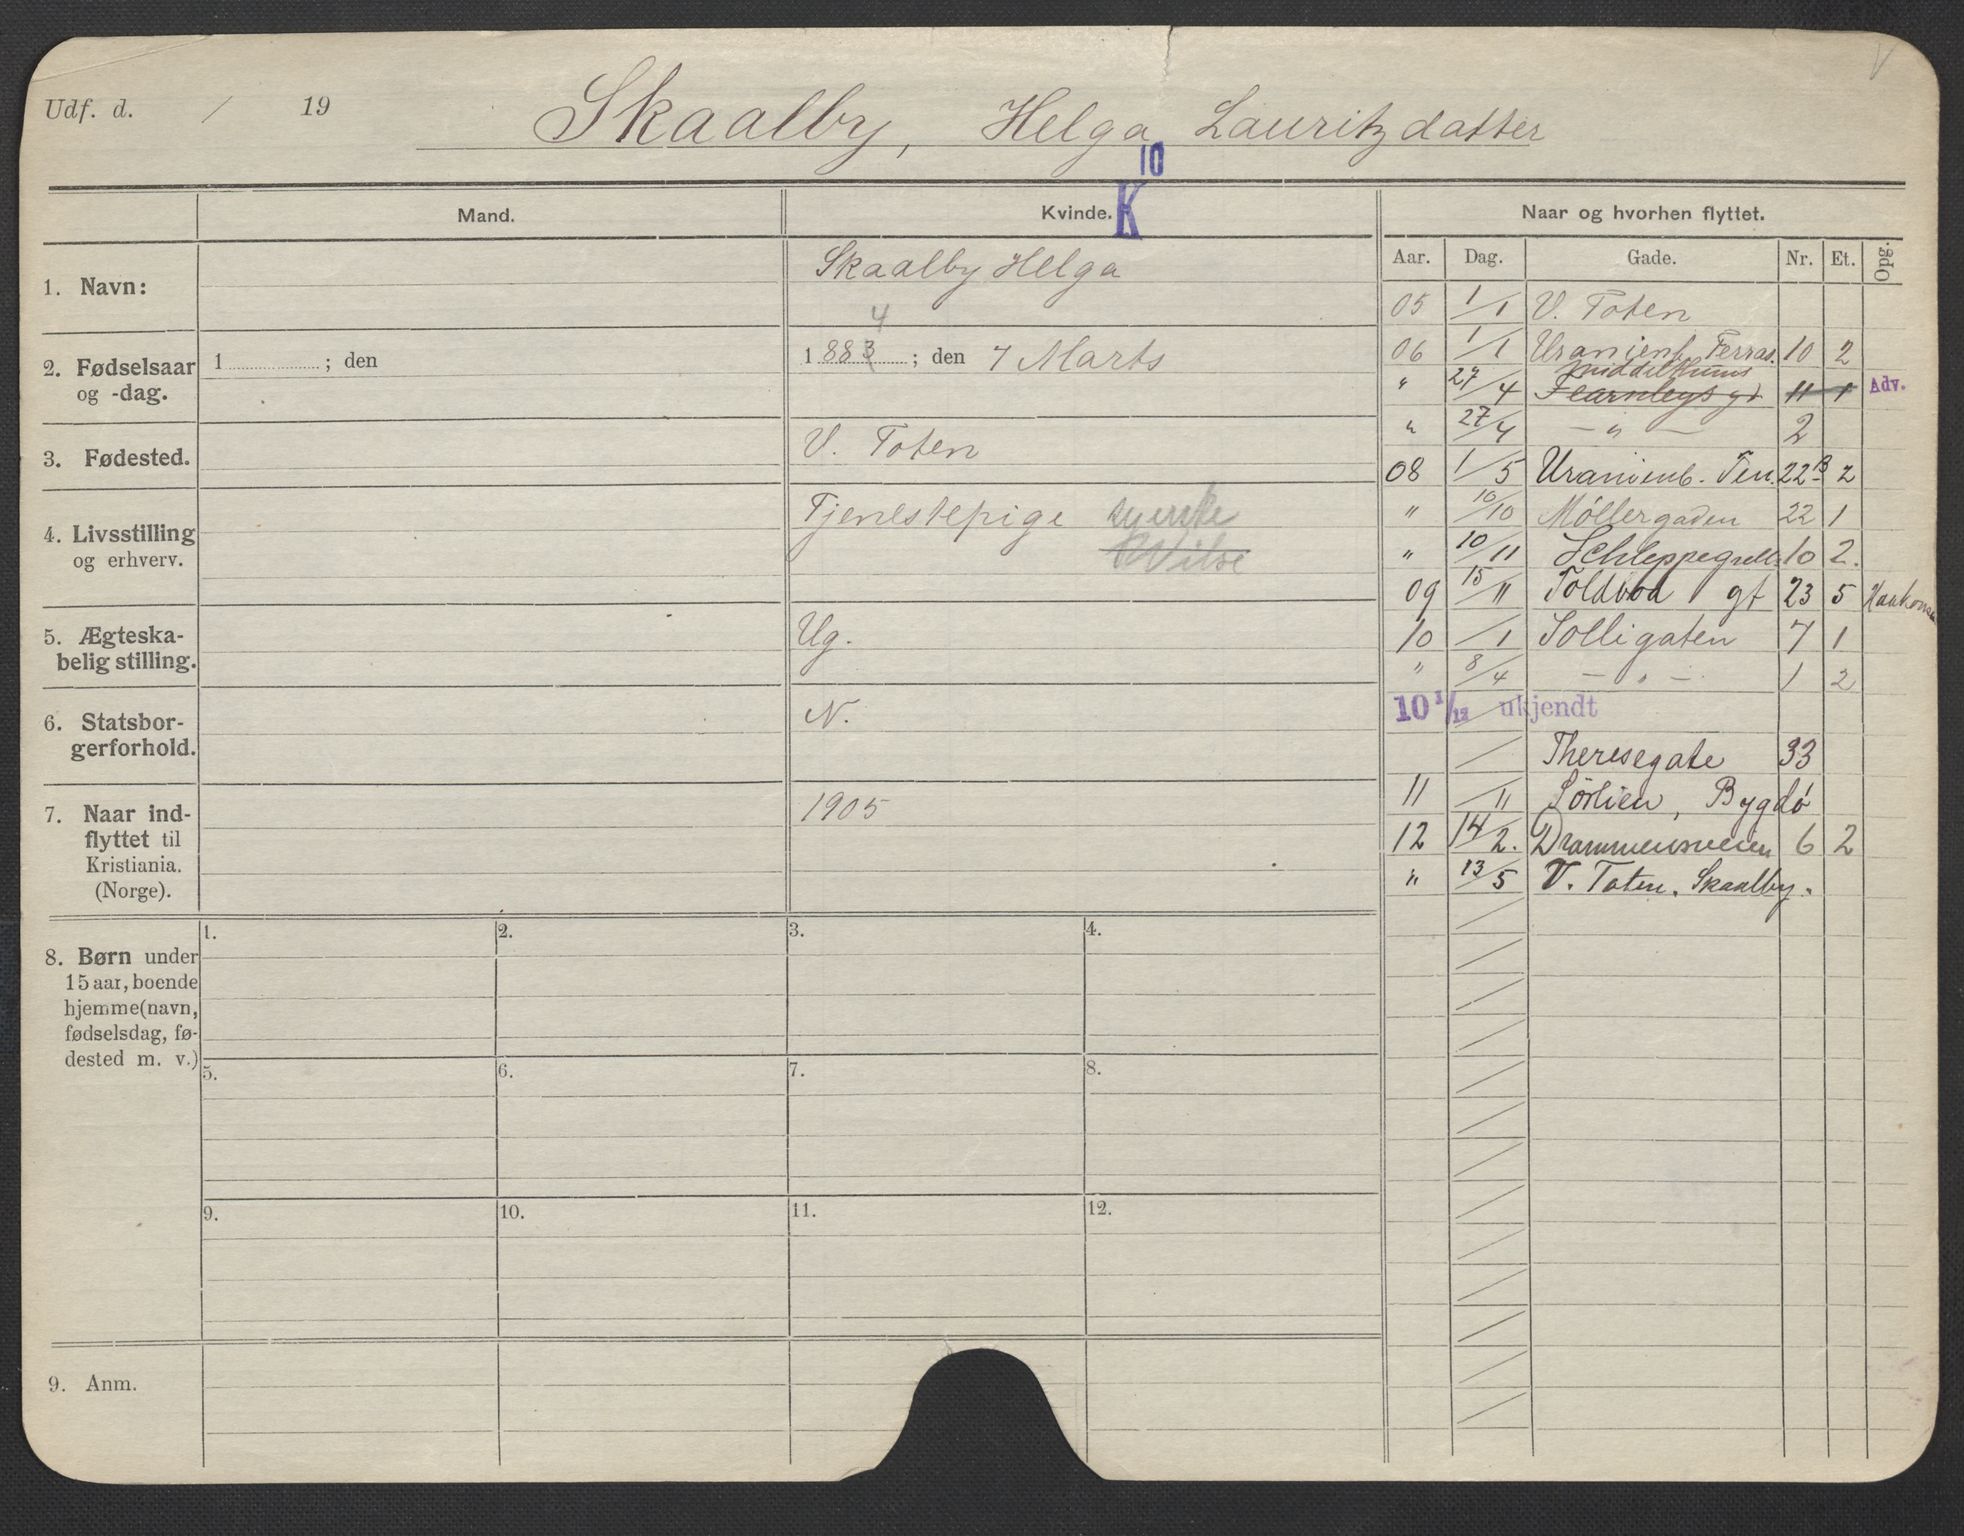 Udf. d. / 19
Skaalby, Helga Lauritzdatter
10
K
Mand.
Kvinde.
Naar og hvorhen flyttet.
Aar. Dag. Gade. Nr. Et. Opg.
1. Navn:
Skaalby Helga
2. Fødselsaar
og -dag.
1 ; den
4
1883 ; den 7 Marts
3. Fødested.
V. Toten
4. Livsstilling
og erhverv.
Tjenestepige syerske
5. Ægteska-
belig stilling.
Ug.
6. Statsbor-
gerforhold.
N.
7. Naar ind-
flyttet til
Kristiania.
(Norge).
1905
8. Børn under
15 aar, boende
hjemme (navn,
fødselsdag, fø-
dested m. v.)
1. 2. 3. 4.
5. 6. 7. 8.
9. 10. 11. 12.
9. Anm.
05 1/1 V. Toten
06 1/1 Uranienb. Terras. 10 2
Middelthuns
" 27/4 Fearnleys gt 11 1 Adv.
" 27/4 — " — 2
08 1/5 Uranienb. Terr. 22B 2
" 10/10 Møllergaden 22 1
" 10/11 Schleppegrells 10 2.
09 15/11 Toldbod gt 23 5 Haakonsen
10 /1 Solligaten 7 1
" 8/4 — " — 1 2
10 1/12 ukjendt
/ Theresegate 33
11 /11 Sørlien, Bygdø
12 14/2. Drammensveien 6 2
" 13/5 V. Toten. Skaalby.